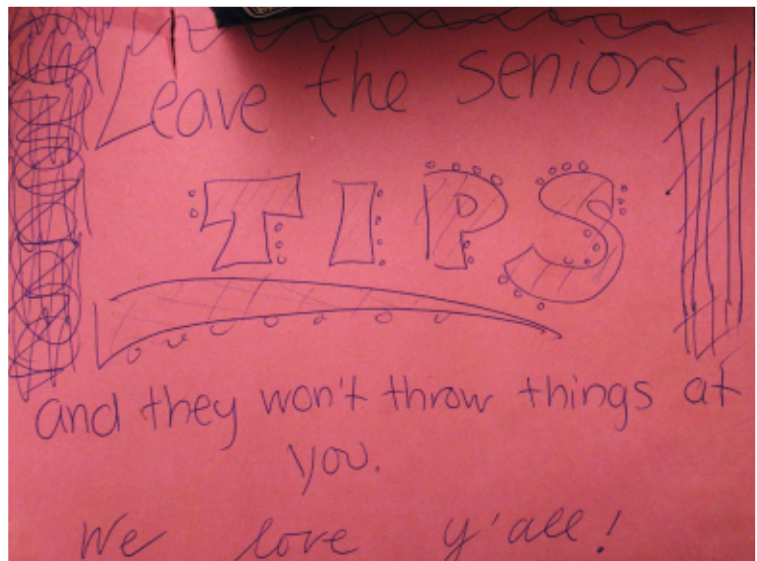 Leave the seniors
TIPS
and they won't throw things at
you.
We love y'all!